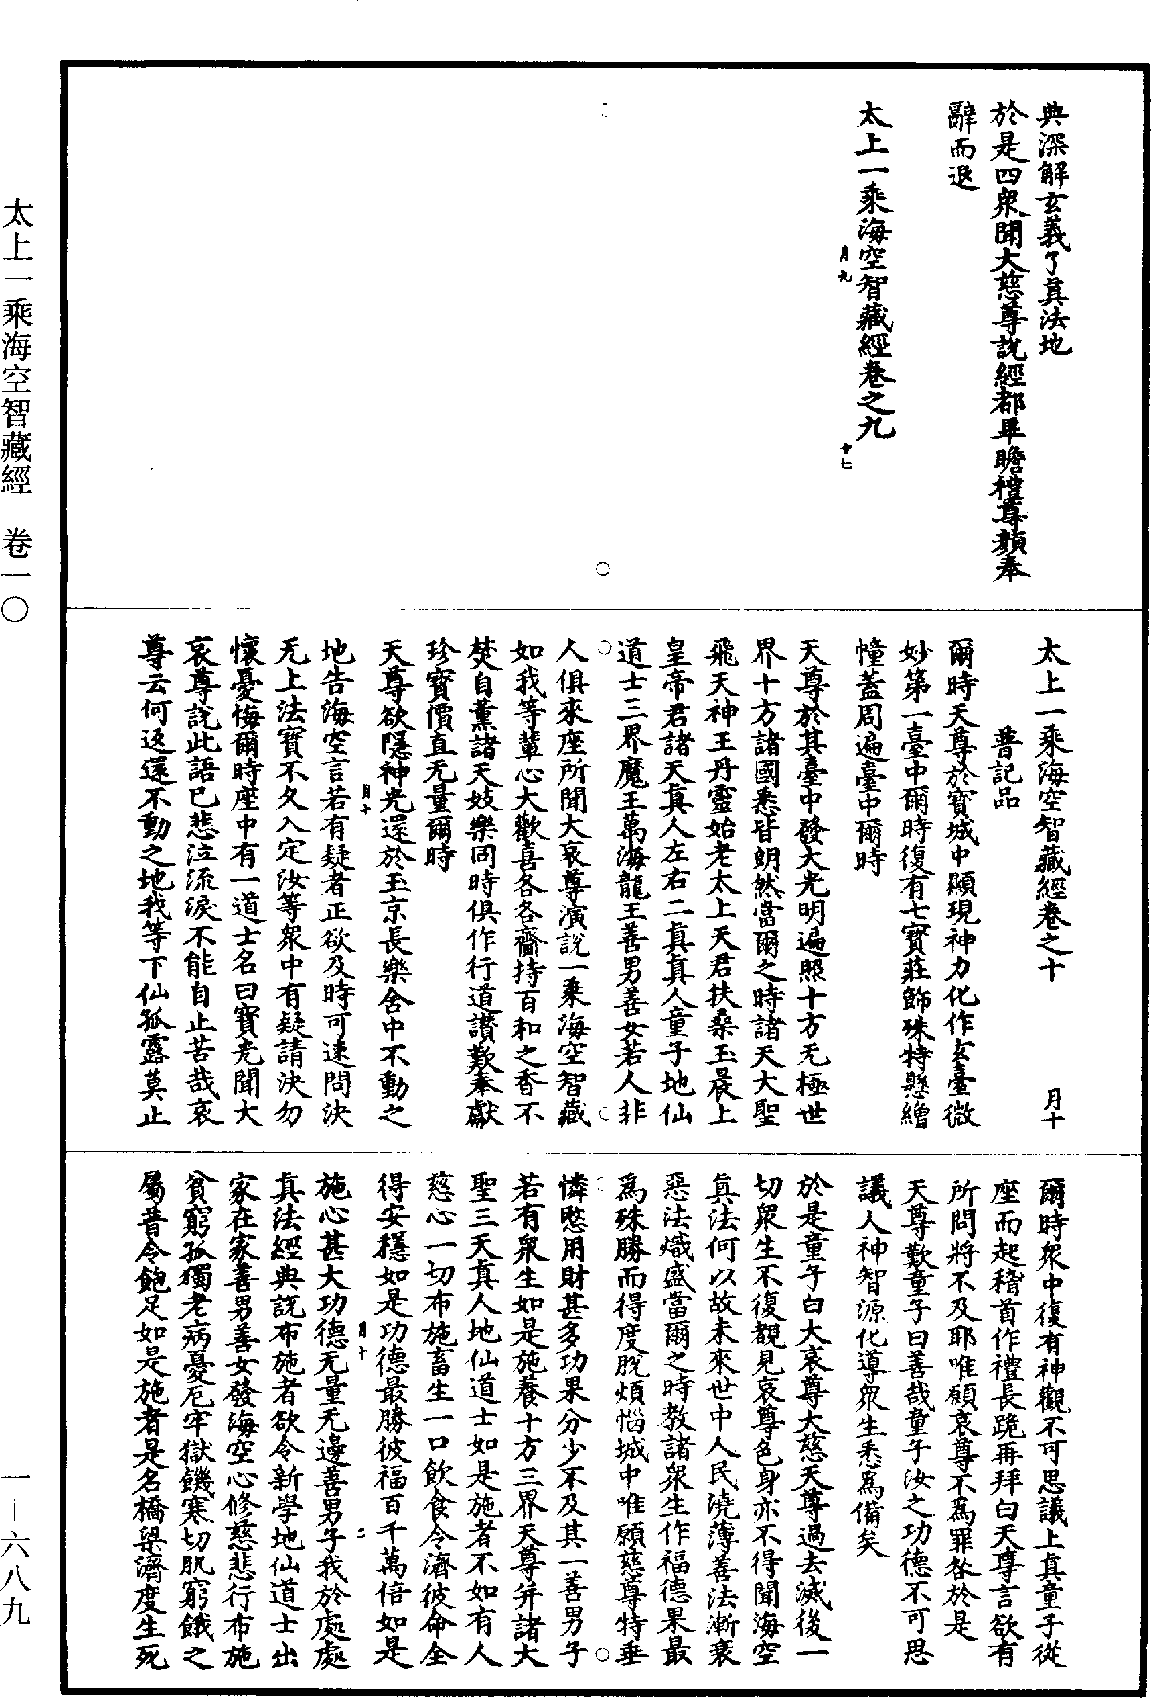 典深解玄義了真法地
於是四衆聞大慈尊說經都畢瞻禮尊顏奉
辭而退
太上一乘海空智藏經卷之九
月九
十七
太上一乘海空智藏經卷之十
月十
普記品
爾時天尊於寶城中顯現神力化作玄臺微
妙第一臺中爾時復有七寶莊飾殊特懸繒
幢蓋周遍臺中爾時
天尊於其臺中發大光明遍照十方无極世
界十方諸國悉皆朗然當爾之時諸天大聖
飛天神王丹靈始老太上天君扶桑玉晨上
皇帝君諸天真人左右二真真人童子地仙
道士三界魔王萬海龍王善男善女若人非
人俱來座所聞大哀尊演說一乘海空智藏
如我等輩心大歡喜各各齎持百和之香不
焚自薰諸天妓樂同時俱作行道讚歎奉獻
珍寶價直无量爾時
天尊欲隱神光還於玉京長樂舍中不動之
月十
地告海空言若有疑者正欲及時可速問決
无上法寶不久入定汝等衆中有疑請決勿
懷憂悔爾時座中有一道士名曰寶光聞大
哀尊說此語已悲泣流淚不能自止苦哉哀
尊云何返還不動之地我等下仙孤露莫止
爾時衆中復有神觀不可思議上真童子從
座而起稽首作禮長跪再拜白天尊言欲有
所問將不及耶唯願哀尊不為罪咎於是
天尊歎童子曰善哉童子汝之功德不可思
議人神智源化導衆生悉為備矣
於是童子白大哀尊大慈天尊過去滅後一
切衆生不復覩見哀尊色身亦不得聞海空
真法何以故未來世中人民澆薄善法漸衰
惡法熾盛當爾之時教諸衆生作福德果最
為殊勝而得度脫煩惱城中唯願慈尊特垂
憐愍用財甚多功果分少不及其一善男子
若有衆生如是施養十方三界天尊并諸大
聖三天真人地仙道士如是施者不如有人
慈心一切布施畜生一口飲食令濟彼命全
得安穩如是功德最勝彼福百千萬倍如是
月十
二
施心甚大功德无量无邊善男子我於處處
真法經典說布施者欲令新學地仙道士出
家在家善男善女發海空心修慈悲行布施
貧窮孤獨老病憂厄牢獄饑寒切肌窮餓之
屬普令飽足如是施者是名橋梁濟度生死
太上一乘海空智藏經　卷一〇
一—六八九